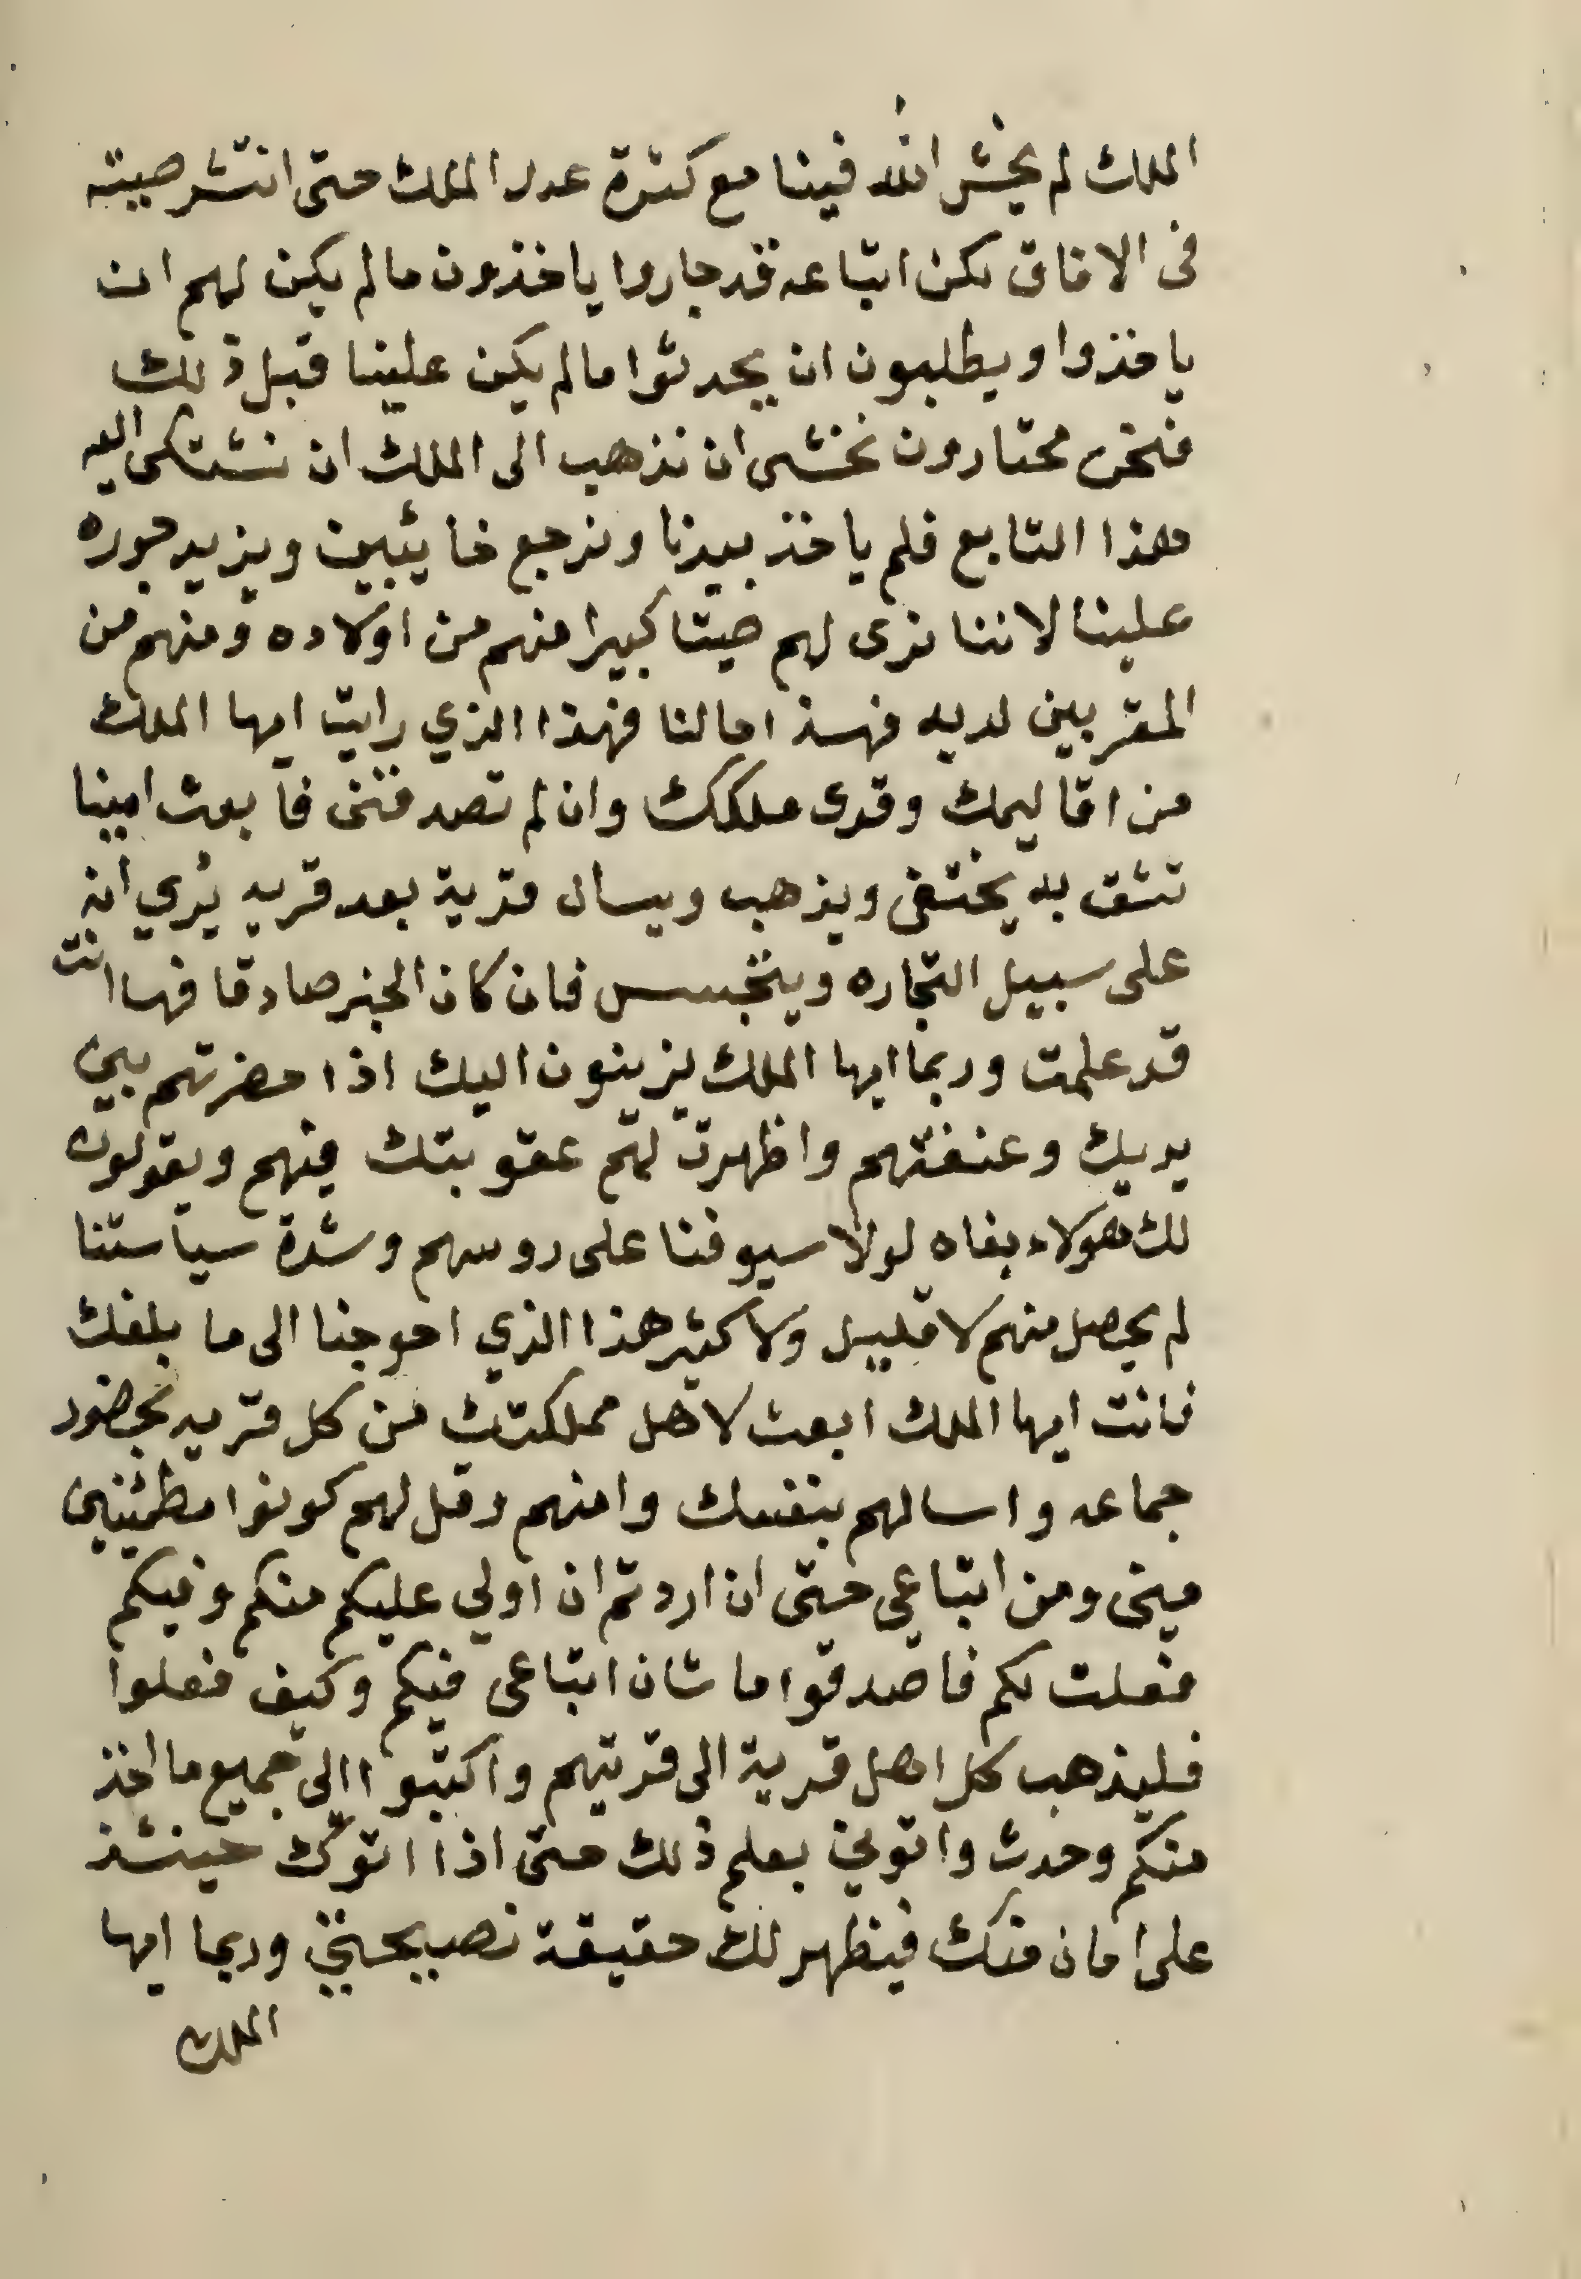 الملك لم يخش الله فينا مع كثرة عدل الملك حتى انتشر صيته
فى الافاق لكن اتباعه قد جاروا ياخذون ما لم يكن لهم ان
ياخذوا ويطلبون ان يحدثوا ما لم يكن علينا قبل ذلك
فنحن محتارون نخشى ان نذهب الى الملك ان نشتكى اليه
هذا التابع فلم ياخذ بيدنا ونرجع خايبين ويزيد جوره
علينا لاننا نرى لهم صيتا كبيرا منهم من اولاده ومنهم من
المقربين لديه فهذا حالنا فهذا الذي رايت ايها الملك
من اقاليمك وقرى ملكك وان لم تصدقنى فابعث امينا
تثق به يختفى ويذهب ويسال قرية بعد قريه يُري انه
على سبيل التجاره ويتجسس فان كان الخبر صادقا فها انت
قد علمت وربما ايها الملك يزينون اليك اذا حضرتهم بين
يديك وعنفتهم واظهرت لهم عقوبتك فيهم ويقولون
لك هولاء بغاه لولا سيوفنا على روسهم وشدة سياستنا
لم يحصل منهم لا قليل ولا كثير هذا الذي احوجنا الى ما بلغك
فانت ايها الملك ابعث لاهل مملكتك من كل قريه بحضور
جماعه واسالهم بنفسك وامنهم وقل لهم كونوا مطمئنين
مينى ومن اتباعى حتى ان اردتم ان اولي عليكم منكم وفيكم
فعلت لكم فاصدقوا ما شان اتباعى فيكم وكيف فعلوا
فليذهب كل اهل قرية الى قريتهم واكتبوا الى جميع ما اخذ
منكم وحدث واتوني بعلم ذلك حتى اذا اتوك حينئذ
على امان منك فيظهر لك حقيقة نصيحتي وربما ايها
الملك